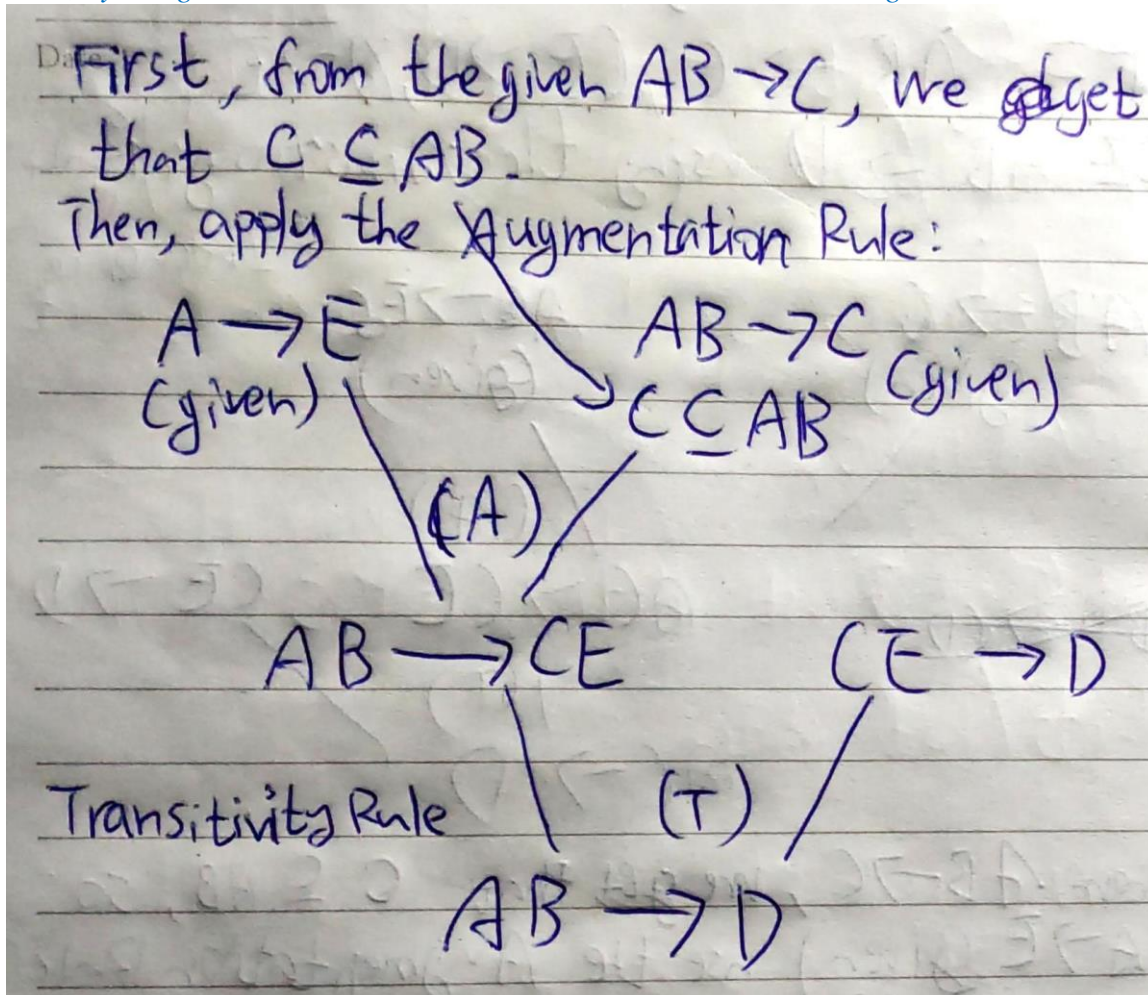 First, from the given AB → C, we get
that C ⊆ AB.
Then, apply the Augmentation Rule:
A → E AB → C
(given) (given)
C ⊆ AB
(A)
AB → CE CE → D
Transitivity Rule (T)
AB → D